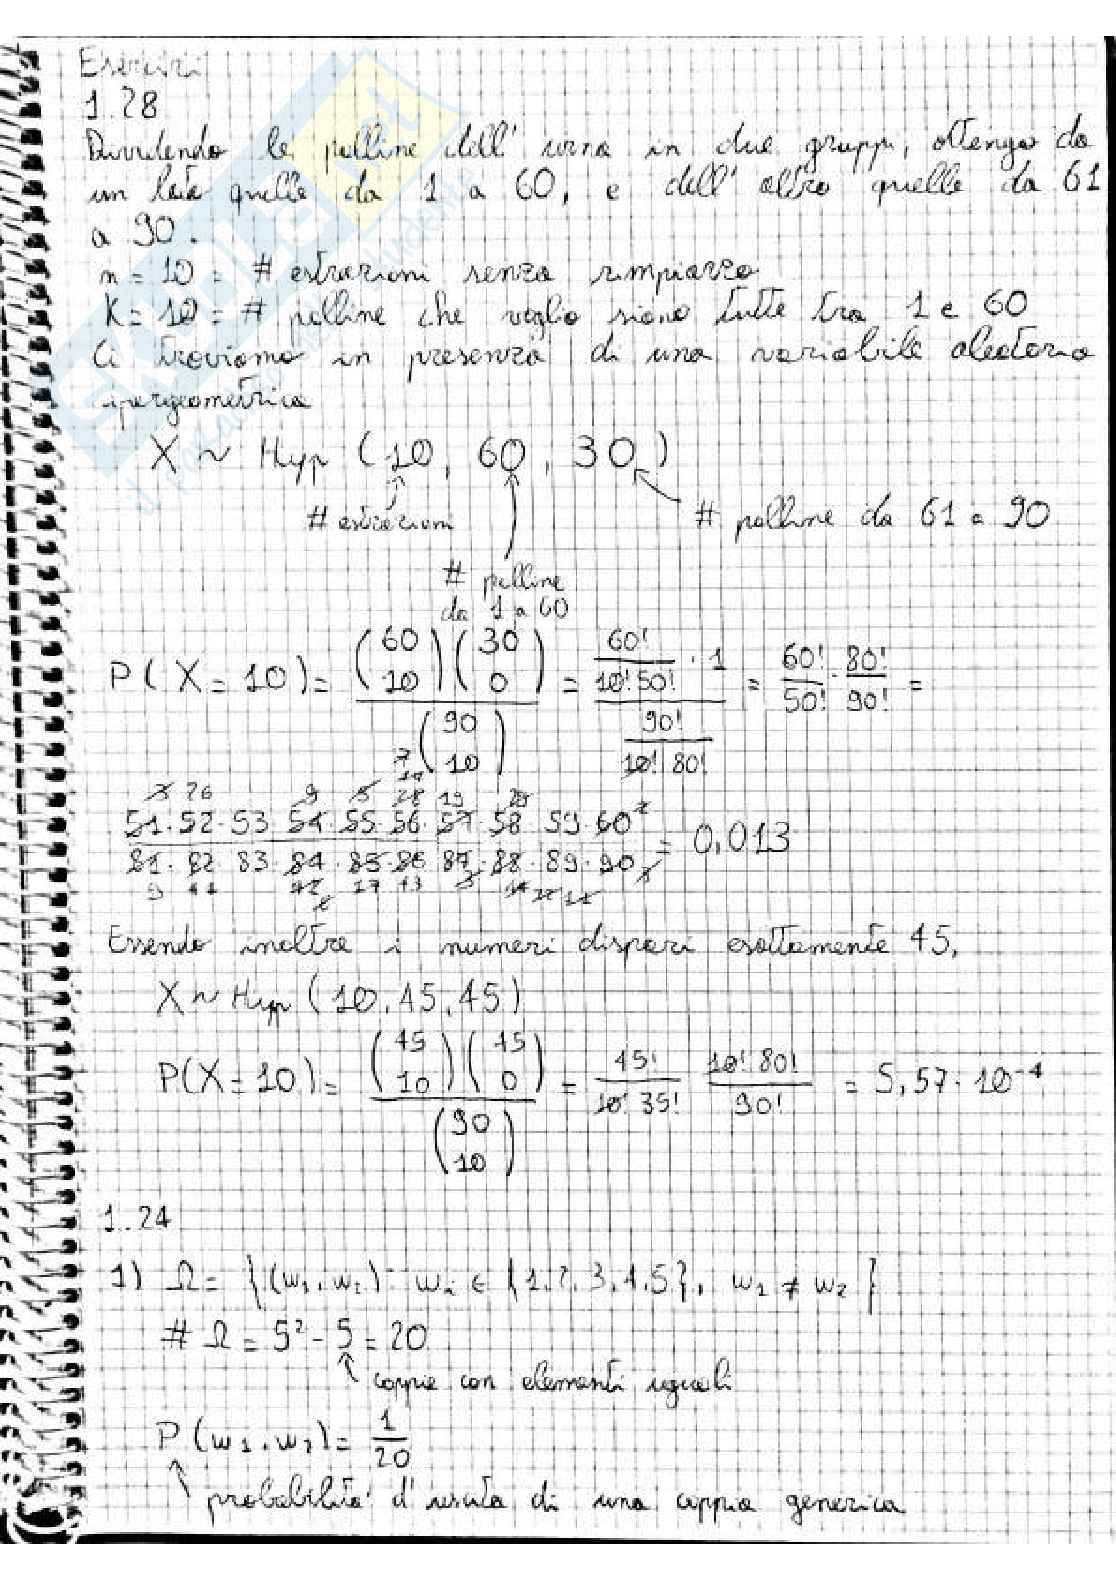 Esercizi
1.28
Dividendo le palline dell'urna in due gruppi, ottengo da
un lato quelle da 1 a 60, e dall'altro quelle da 61
a 90.
n = 10 = # estrazioni senza rimpiazzo
K = 10 = # palline che voglio siano tutte tra 1 e 60
Ci troviamo in presenza di una variabile aleatoria
ipergeometrica
X ~ Hyp (10, 60, 30)
# estrazioni
# palline da 61 a 90
# palline
da 1 a 60
P(X = 10) = \frac{\binom{60}{10}\binom{30}{0}}{\binom{90}{10}} = \frac{\frac{60!}{10! 50!} · 1}{\frac{90!}{10! 80!}} = \frac{60!}{50!} · \frac{80!}{90!} =
\frac{51·52·53·54·55·56·57·58·59·60}{81·82·83·84·85·86·87·88·89·90} = 0,013
Essendo inoltre i numeri dispari esattamente 45,
X ~ Hyp (10, 45, 45)
P(X = 10) = \frac{\binom{45}{10}\binom{45}{0}}{\binom{90}{10}} = \frac{45!}{10! 35!} \frac{10! 80!}{90!} = 5,57 · 10^{-4}
1.24
1) Ω = {(w_1, w_2): w_i ∈ {1,2,3,4,5}, w_1 ≠ w_2}
# Ω = 5^2 - 5 = 20
coppie con elementi uguali
P(w_1, w_2) = \frac{1}{20}
probabilità d'uscita di una coppia generica